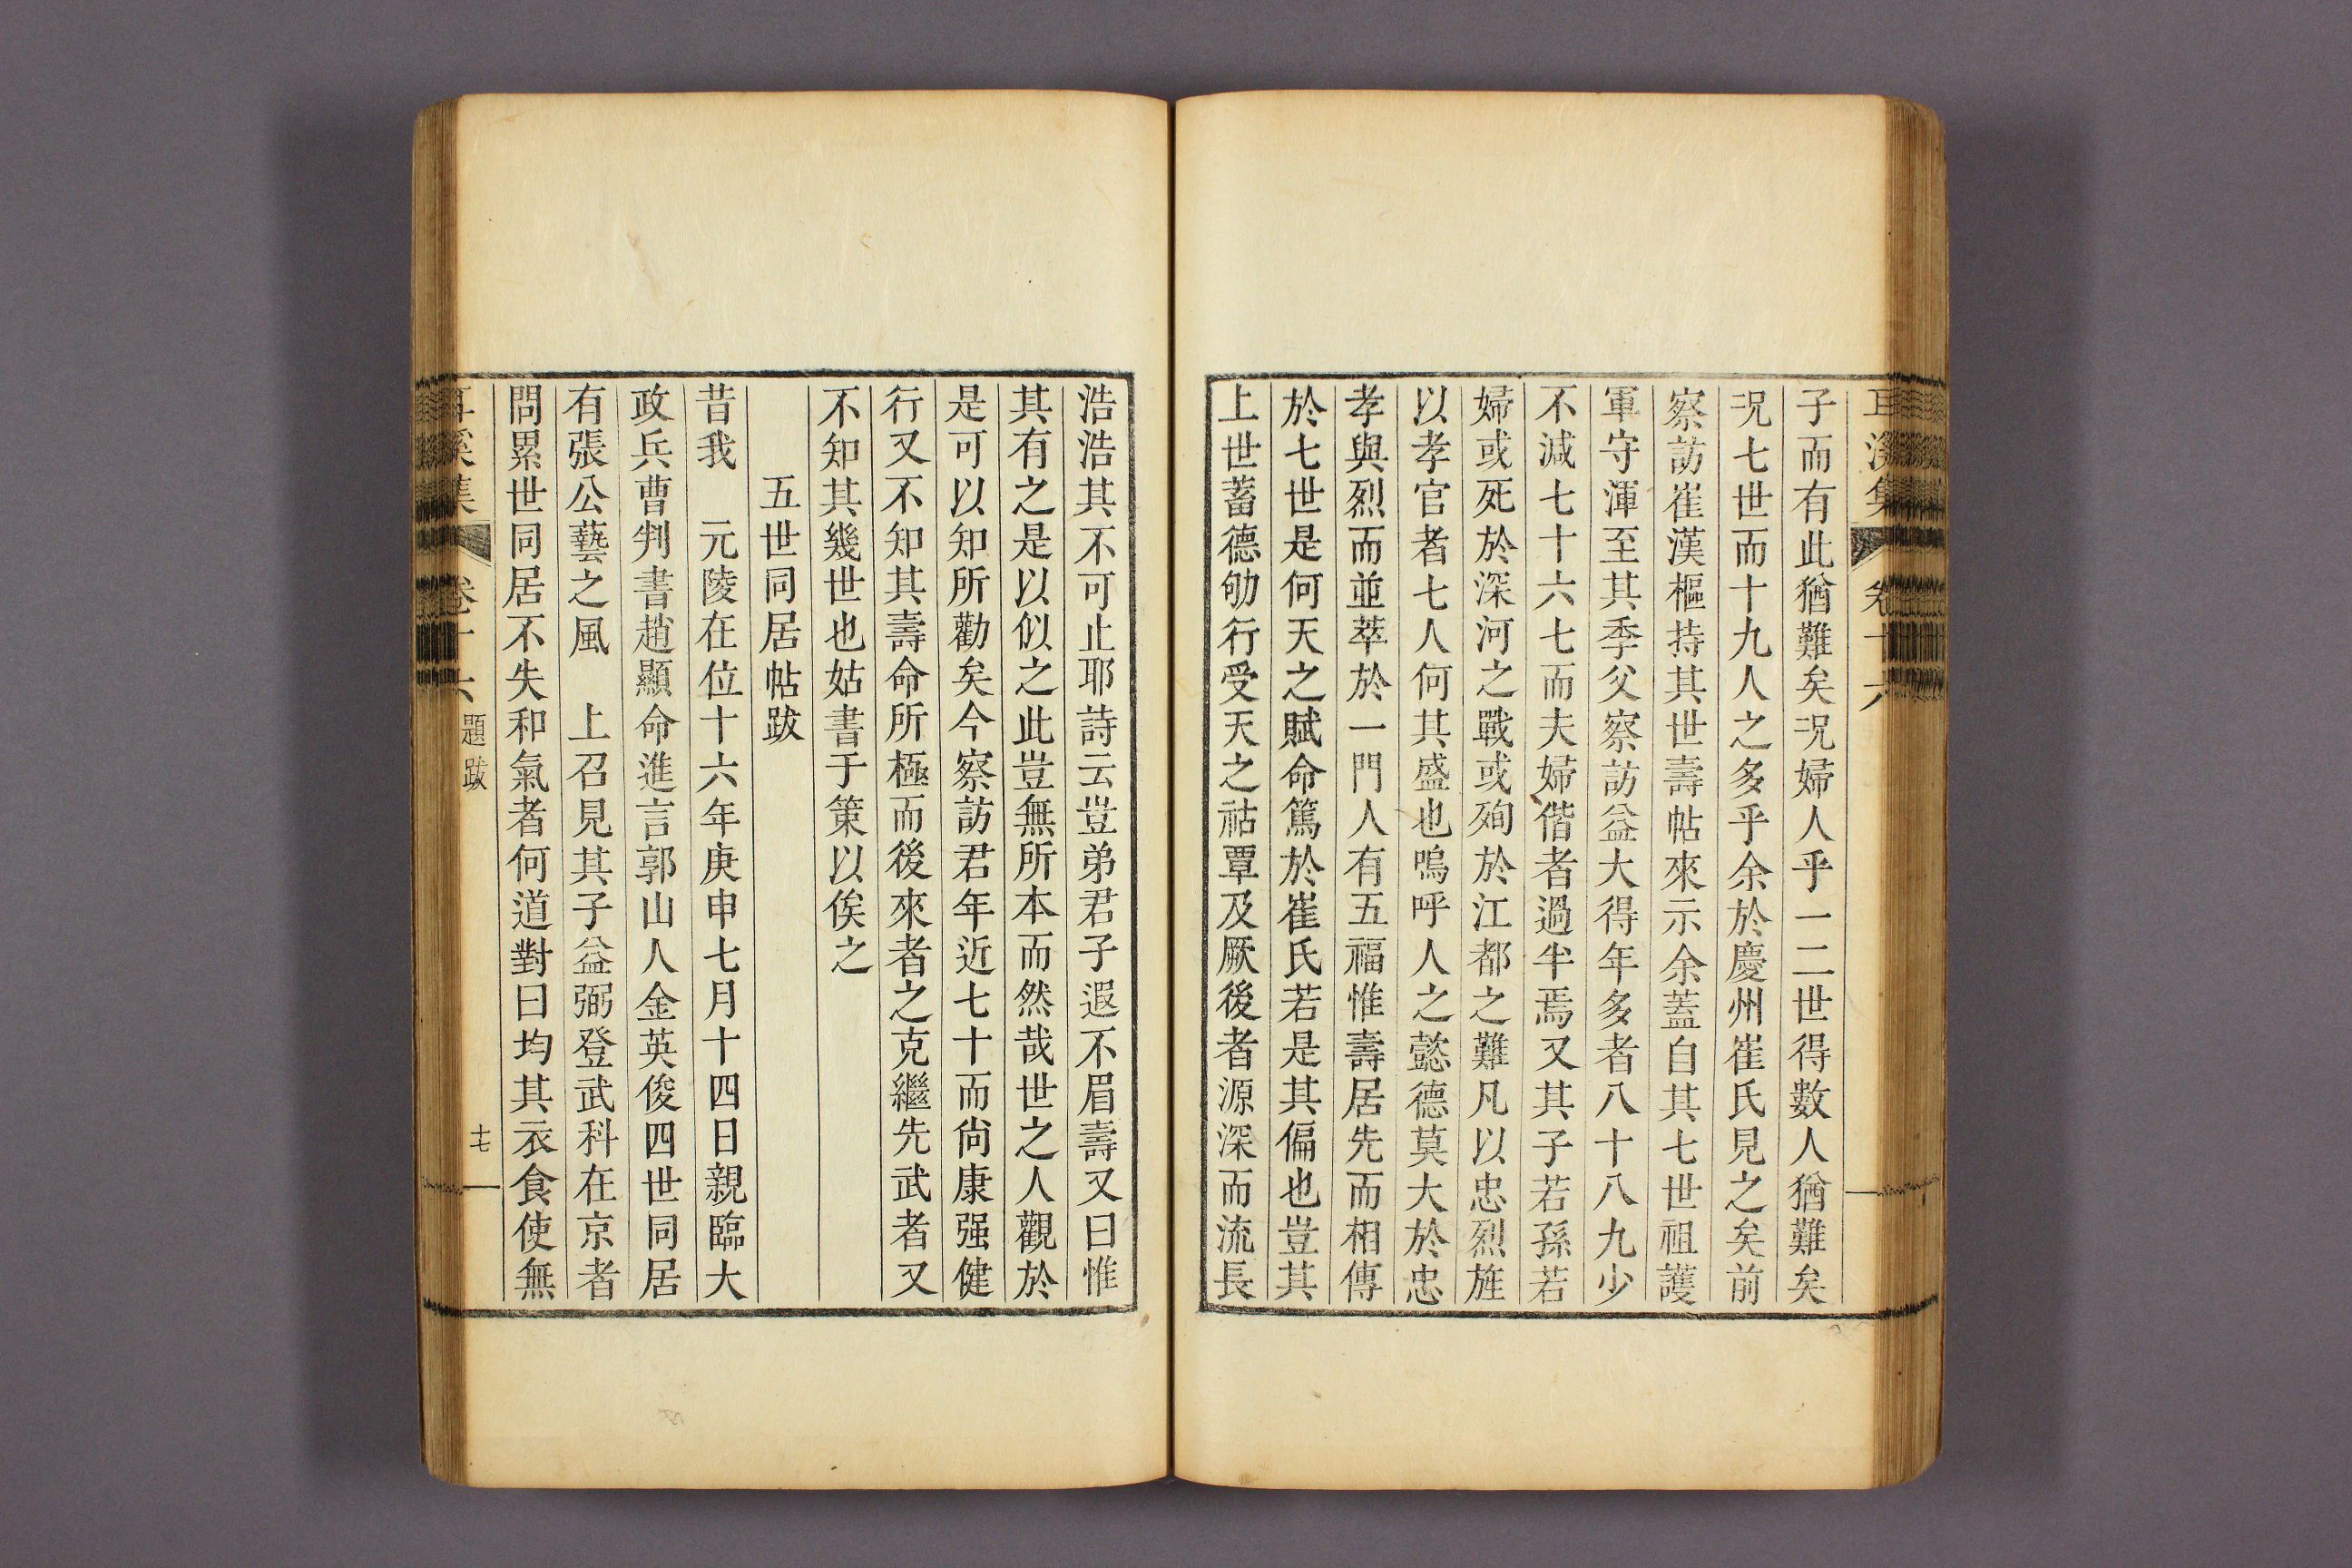 耳溪集 卷十六
子而有此猶難矣况婦人乎一二世得數人猶難矣
况七世而十九人之多乎余於慶州崔氏見之矣前
察訪崔漢樞持其世壽帖來示余蓋自其七世祖護
軍守渾至其季父察訪益大得年多者八十八九少
不減七十六七而夫婦偕者過半焉又其子若孫若
婦或死於深河之戰或殉於江都之難凡以忠烈旌
以孝官者七人何其盛也嗚呼人之懿德莫大於忠
孝與烈而並萃於一門人有五福惟壽居先而相傳
於七世是何天之賦命篤於崔氏若是其偏也豈其
上世蓄德劬行受天之祜覃及厥後者源深而流長
浩浩其不可止耶詩云豈弟君子遐不眉壽又曰惟
其有之是以似之此豈無所本而然哉世之人觀於
是可以知所勸矣今察訪君年近七十而尙康强健
行又不知其壽命所極而後來者之克繼先武者又
不知其幾世也姑書于策以俟之
五世同居帖跋
昔我　元陵在位十六年庚申七月十四日親臨大
政兵曹判書趙顯命進言郭山人金英俊四世同居
有張公藝之風　上召見其子益弼登武科在京者
問累世同居不失和氣者何道對曰均其衣食使無
耳溪集 卷十六 題跋 十七